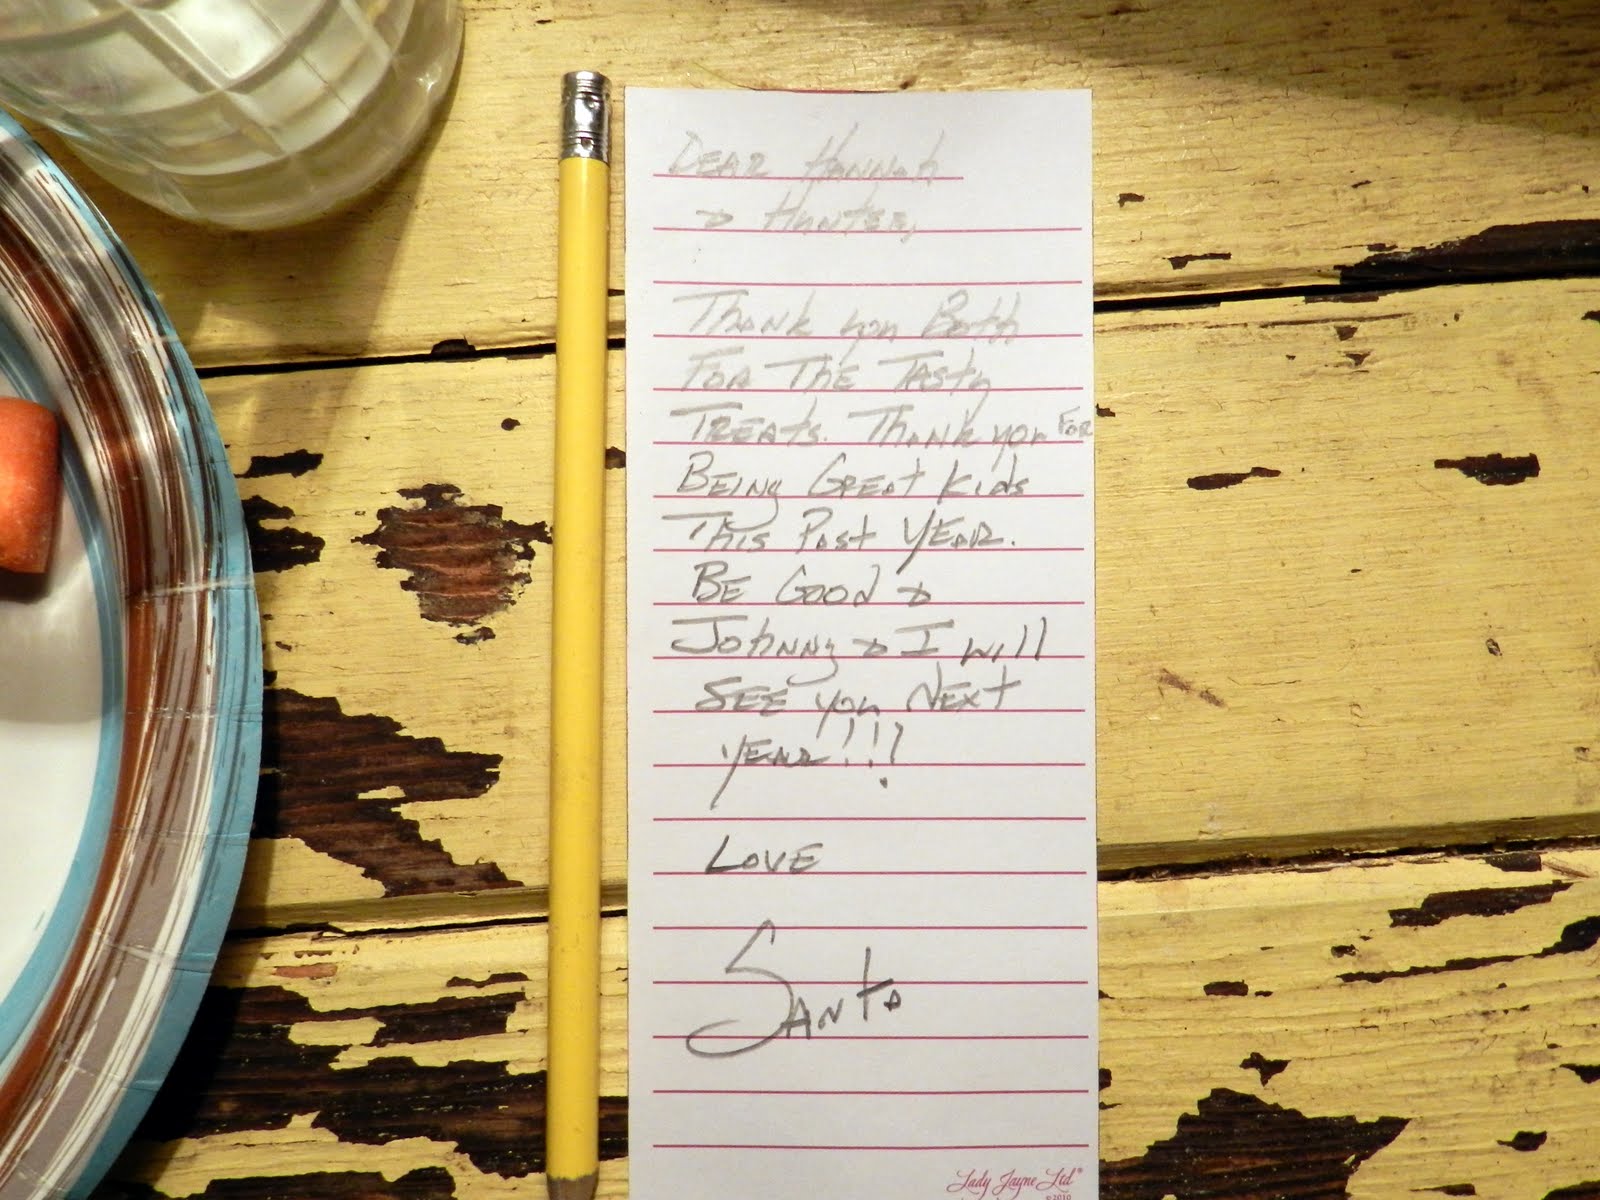 Dear Hannah
& Hunter,
Thank you Both
For The Tasty
Treats. Thank you For
Being Great Kids
This Past Year.
Be Good &
Johnny & I will
See you Next
Year!!!
Love
Santa
Lady Jayne Ltd®
©2010